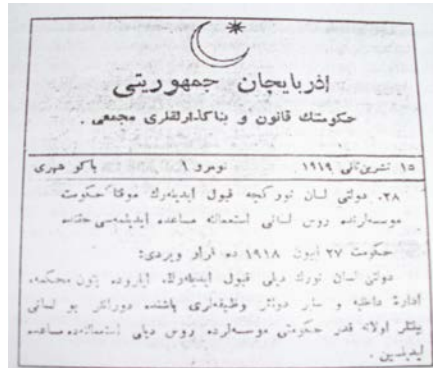 آذربایجان جمهوریتی
حکومتنك قانون و بناكذارلقلری مجمعی .
١٥ تشرین ثانی ١٩١٩ نومرو ١ باکو شهری
٢٨. دولتی لسان تورکجه قبول ایدیلەرك موقتا حکومت
مؤسسەلرنده روس لسانی استعمالنه مساعده ایدیلمەسی حقنده
حکومت ٢٧ ایون ١٩١٨ ده قرار ویردی:
دولتی لسان تورك دیلی قبول ایدیلەرك، ایلروده بتون محکمه،
ادارۀ داخلیه و سایر دوائر وظیفەلری باشنده دورانلر بو لسانی
بیلنلر اولانه قدر حکومتی مؤسسەلرده روس دیلی استعمالنەده مساعده
ایدیلسین .